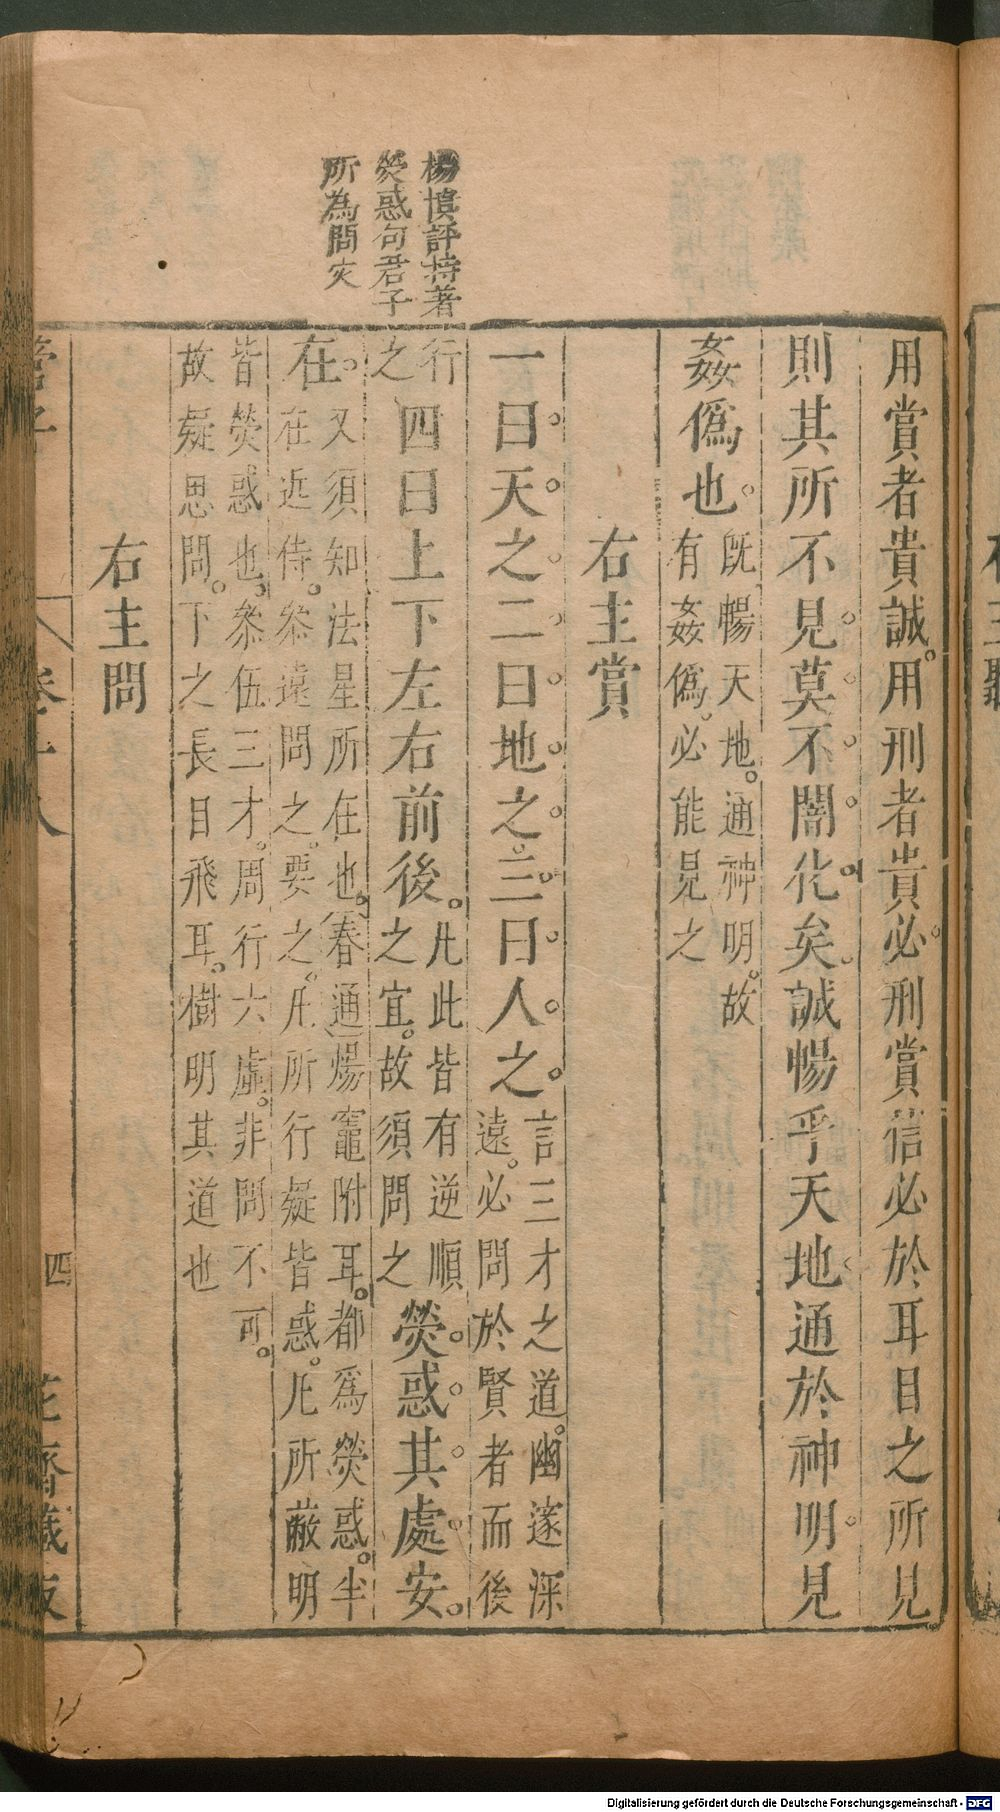 楊慎評特著
熒惑句君子
所為問灾
用賞者貴誠用刑者貴必刑賞信必於耳目之所見
則其所不見莫不闇化矣誠暢乎天地通於神明見
姦僞也
既暢天地通神明故
有姦僞必能見之
右主賞
一曰天之二曰地之三曰人之
言三才之道幽邃深
遠必問於賢者而後
行
之
四曰上下左右前後
凡此皆有逆順
之宜故須問之
熒惑其處安
在
又須知法星所在也春通煬竈附耳都爲熒惑半
在近侍叅遠問之要之凡所行疑皆惑凡所蔽明
皆熒惑也叅伍三才周行六虛非問不可
故疑思問下之長目飛耳樹明其道也
右主問
管子
卷十八
四
花齋藏板
右主聽
Digitalisierung gefördert durch die Deutsche Forschungsgemeinschaft - DFG